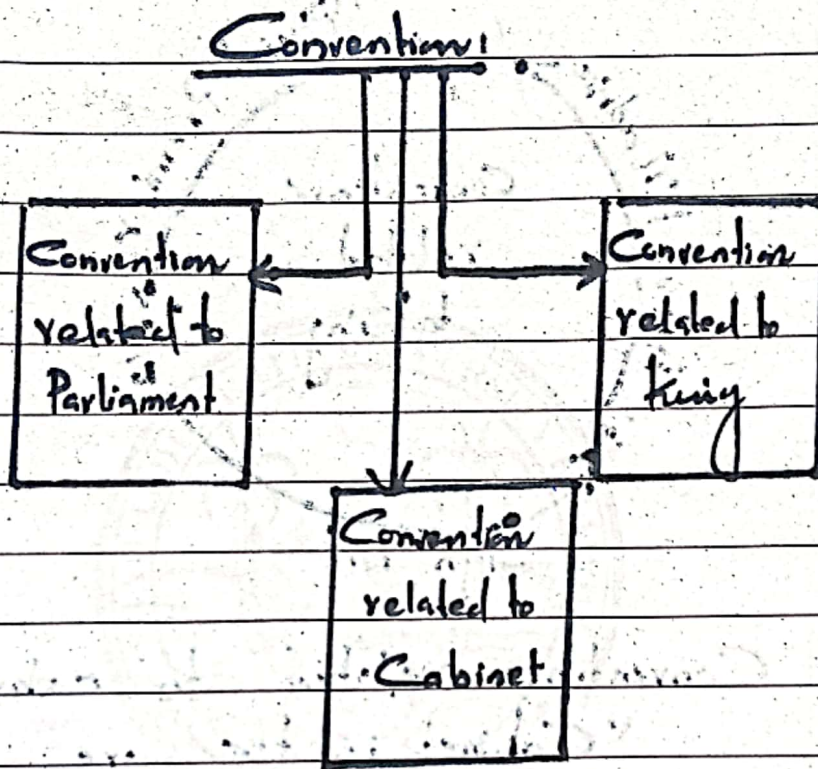 Conventions
Convention
related to
Parliament
Convention
related to
King
Convention
related to
Cabinet.